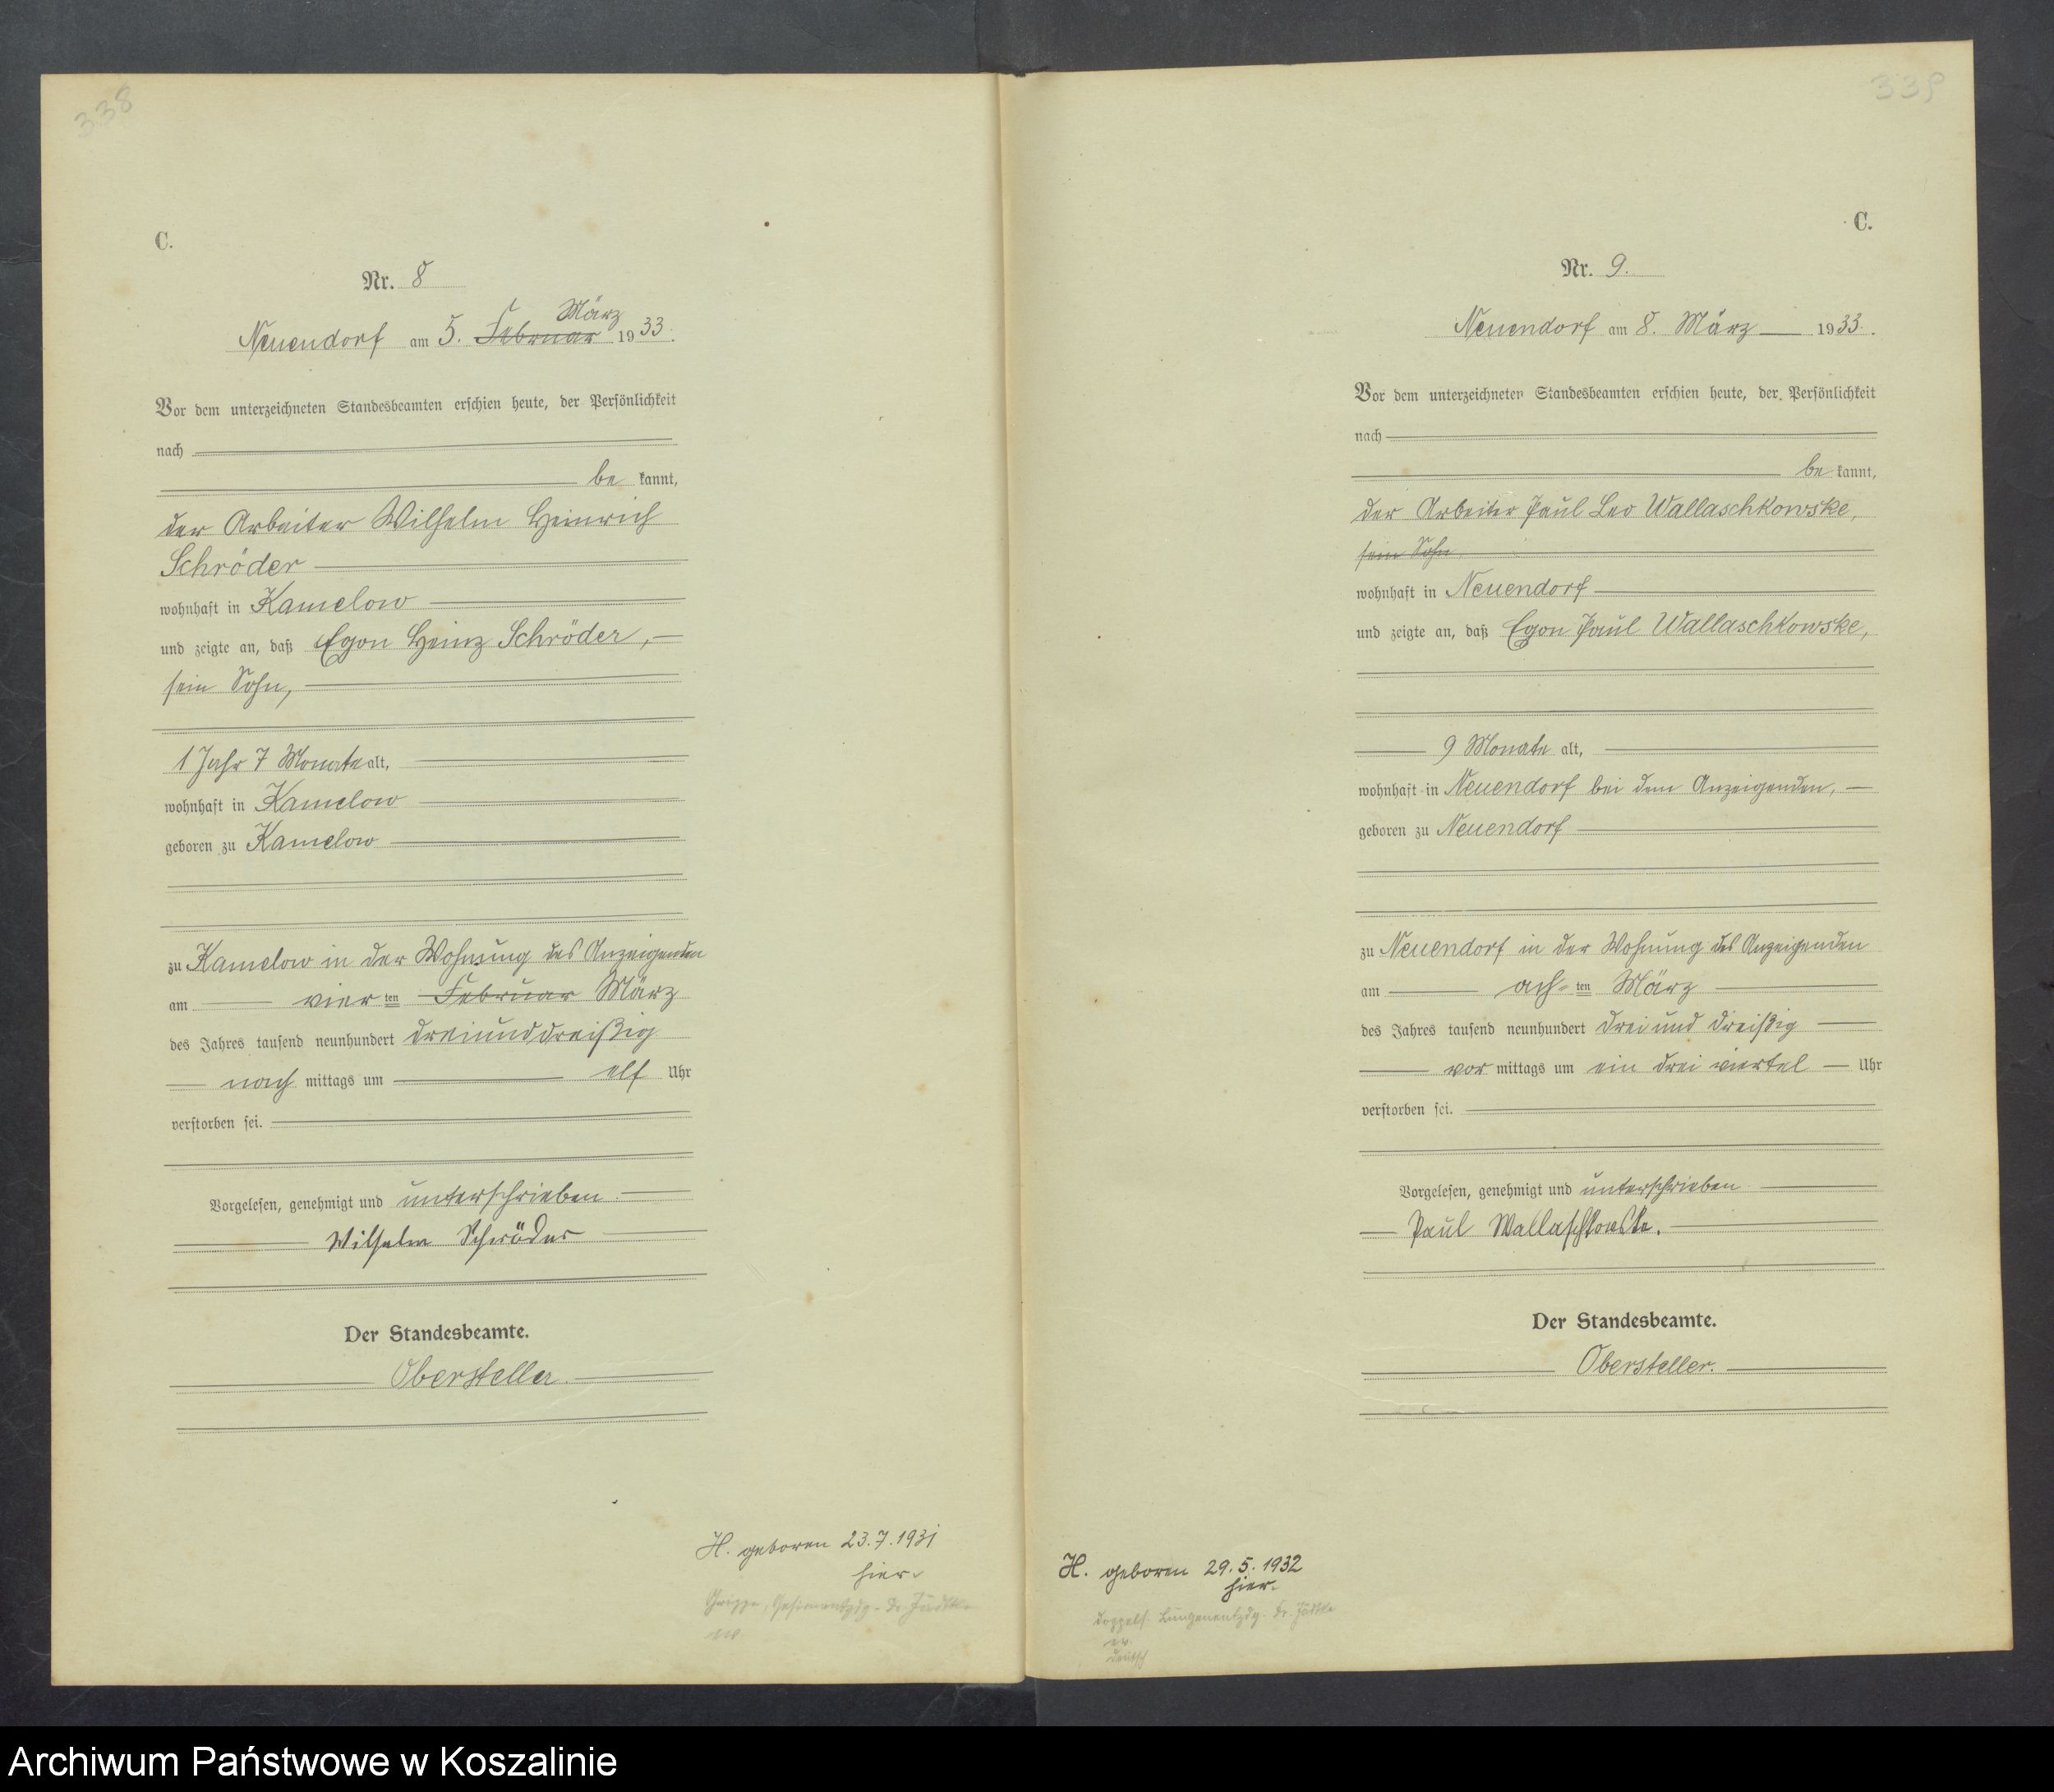 338
C.
Nr. 8
März
Neuendorf am 5. Februar 1933.
Vor dem unterzeichneten Standesbeamten erschien heute, der Persönlichkeit
nach
be kannt,
der Arbeiter Wilhelm Heinrich
Schröder
wohnhaft in Kamelow
und zeigte an, daß Egon Heinz Schröder,
sein Sohn,
1 Jahr 7 Monate alt,
wohnhaft in Kamelow
geboren zu Kamelow
zu Kamelow in der Wohnung des Anzeigenden
am vier ten Februar März
des Jahres tausend neunhundert dreiunddreißig
nach mittags um elf Uhr
verstorben sei.
Vorgelesen, genehmigt und unterschrieben.
Wilhelm Schröder
Der Standesbeamte.
Obersteller.
H. geboren 23.7.1931
hier.
Grippe, Gehirnentzdg. - Dr.
339
C.
Nr. 9.
Neuendorf am 8. März 1933.
Vor dem unterzeichneten Standesbeamten erschien heute, der Persönlichkeit
nach
be kannt,
der Arbeiter Paul Leo Wallaschkowske,
sein Sohn
wohnhaft in Neuendorf
und zeigte an, daß Egon Paul Wallaschkowske,
9 Monate alt,
wohnhaft in Neuendorf bei dem Anzeigenden,
geboren zu Neuendorf
zu Neuendorf in der Wohnung des Anzeigenden
am ach- ten März
des Jahres tausend neunhundert drei und dreißig
vor mittags um ein drei viertel Uhr
verstorben sei.
Vorgelesen, genehmigt und unterschrieben.
Paul Wallaschkowske.
Der Standesbeamte.
Obersteller.
H. geboren 29.5.1932
hier.
doppels. Lungenentzdg. Dr.
ev.
deutsch
Archiwum Państwowe w Koszalinie